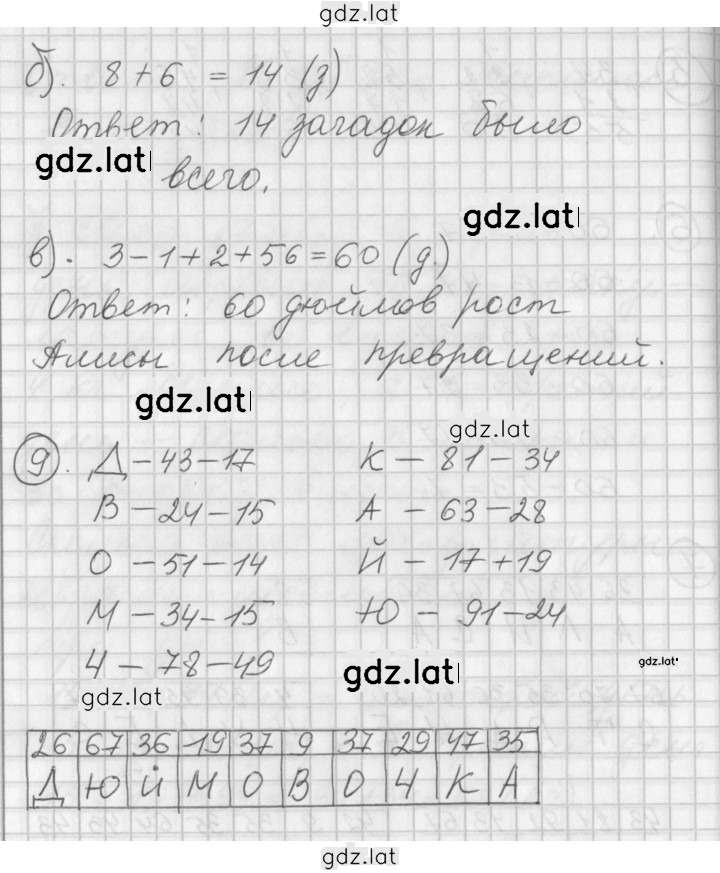 gdz.lat
б). 8 + 6 = 14 (з)
Ответ: 14 загадок было
gdz.lat
всего.
gdz.lat
в). 3 - 1 + 2 + 56 = 60 (д.)
Ответ: 60 дюймов рост
Алисы после превращений.
gdz.lat
gdz.lat
9. Д - 43 - 17 К - 81 - 34
В - 24 - 15 А - 63 - 28
О - 51 - 14 Й - 17 + 19
М - 34 - 15 Ю - 91 - 24
Ч - 78 - 49
gdz.lat
gdz.lat
gdz.lat
26 67 36 19 37 9 37 29 47 35
Д Ю Й М О В О Ч К А
gdz.lat